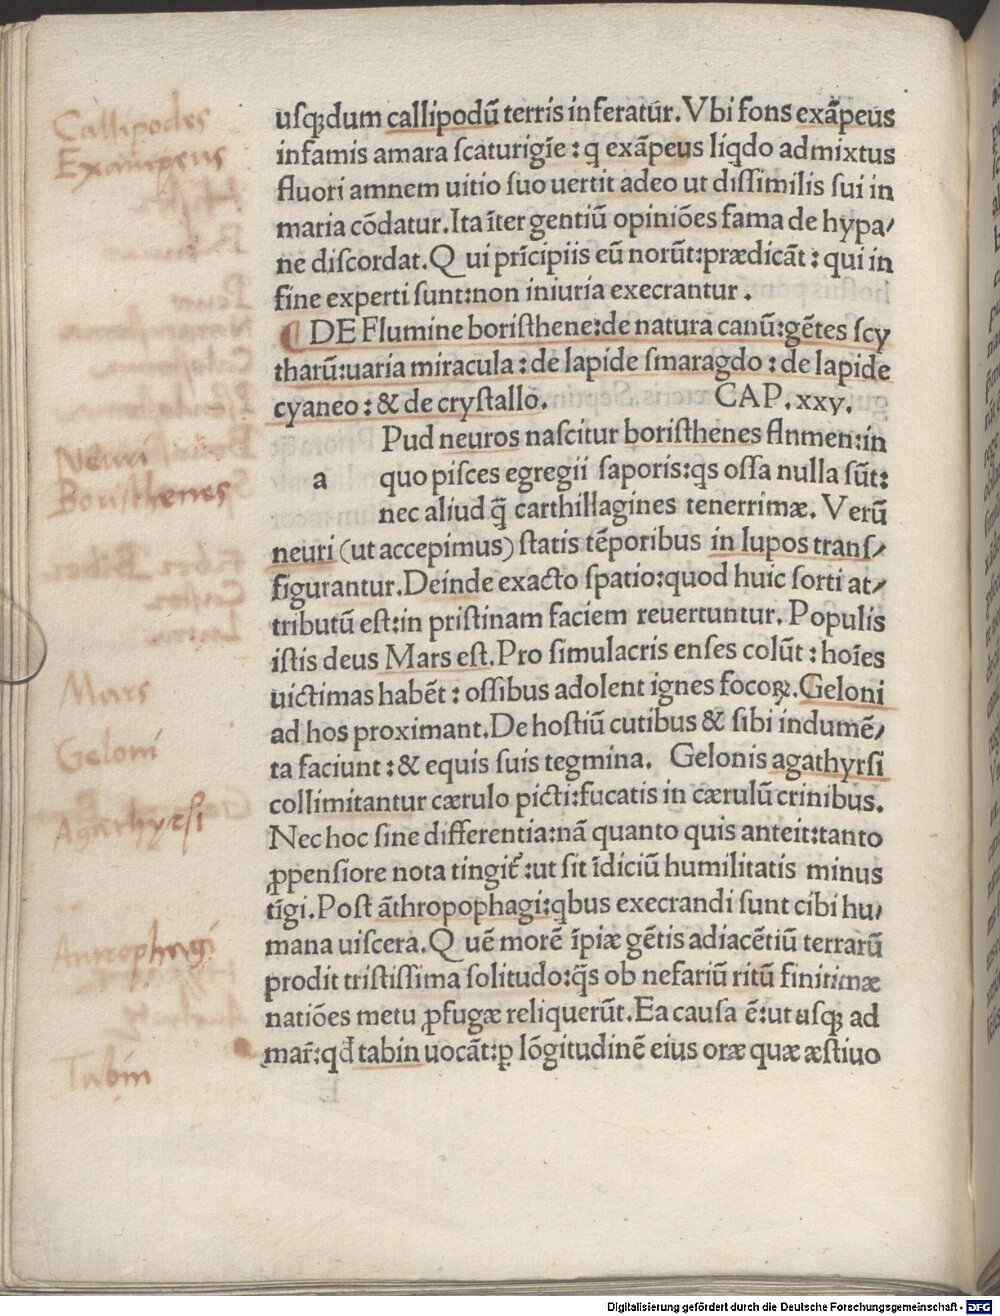 uſqꝫdum callipodũ terris inferatur. Vbi fons exãpeus
infamis amara ſcaturigĩe : q exãpeus liqdo admixtus
fluori amnem uitio ſuo uertit adeo ut diſſimilis ſui in
maria cõdatur. Ita ĩter gentiũ opiniões fama de hypa/
ne diſcordat. Q ui prĩcipiis eũ norũt:prædicãt : qui in
fine experti ſunt:non iniuria execrantur .
¶ DE Flumine boriſthene:de natura canũ:gẽtes ſcy
tharũ:uaria miracula : de lapide ſmaragdo : de lapide
cyaneo : & de cryſtallo. CAP. xxv.
Pud neuros naſcitur boriſthenes flnmen:in
a quo piſces egregii ſaporis:qs oſſa nulla sũt:
nec aliud q̃ carthillagines tenerrimæ. Verũ
neuri (ut accepimus) ſtatis tẽporibus in lupos tranſ/
figurantur. Deinde exacto ſpatio:quod huic ſorti at/
tributũ eſt:in priſtinam faciem reuertuntur. Populis
iſtis deus Mars eſt. Pro ſimulacris enſes colũt : hoĩes
uictimas habẽt : oſſibus adolent ignes focoꝝ. Geloni
ad hos proximant. De hoſtiũ cutibus & ſibi indumẽ/
ta faciunt : & equis ſuis tegmina. Gelonis agathyrſi
collimitantur cærulo picti:fucatis in cærulũ crinibus.
Nec hoc ſine differentia:nã quanto quis anteit:tanto
ꝓpenſiore nota tingit̃ :ut ſit ĩdiciũ humilitatis minus
tĩgi. Poſt ãthropophagi:qbus execrandi ſunt cibi hu/
mana uiſcera. Q uẽ morẽ ĩpiæ gẽtis adiacẽtiũ terrarũ
prodit triſtiſſima ſolitudo:q̃s ob nefariũ ritũ finitimæ
natiões metu ꝓfugæ reliquerũt. Ea cauſa ẽ:ut uſqꝫ ad
mar̃:qđ tabin uocãt:ꝑ lõgitudinẽ eius oræ quæ æſtiuo
Callipodes
Exampeus
Neuri
Boristhenes
Mars
Geloni
Agathyrsi
Antrophagi
Tabin
Digitalisierung gefördert durch die Deutsche Forschungsgemeinschaft - DFG